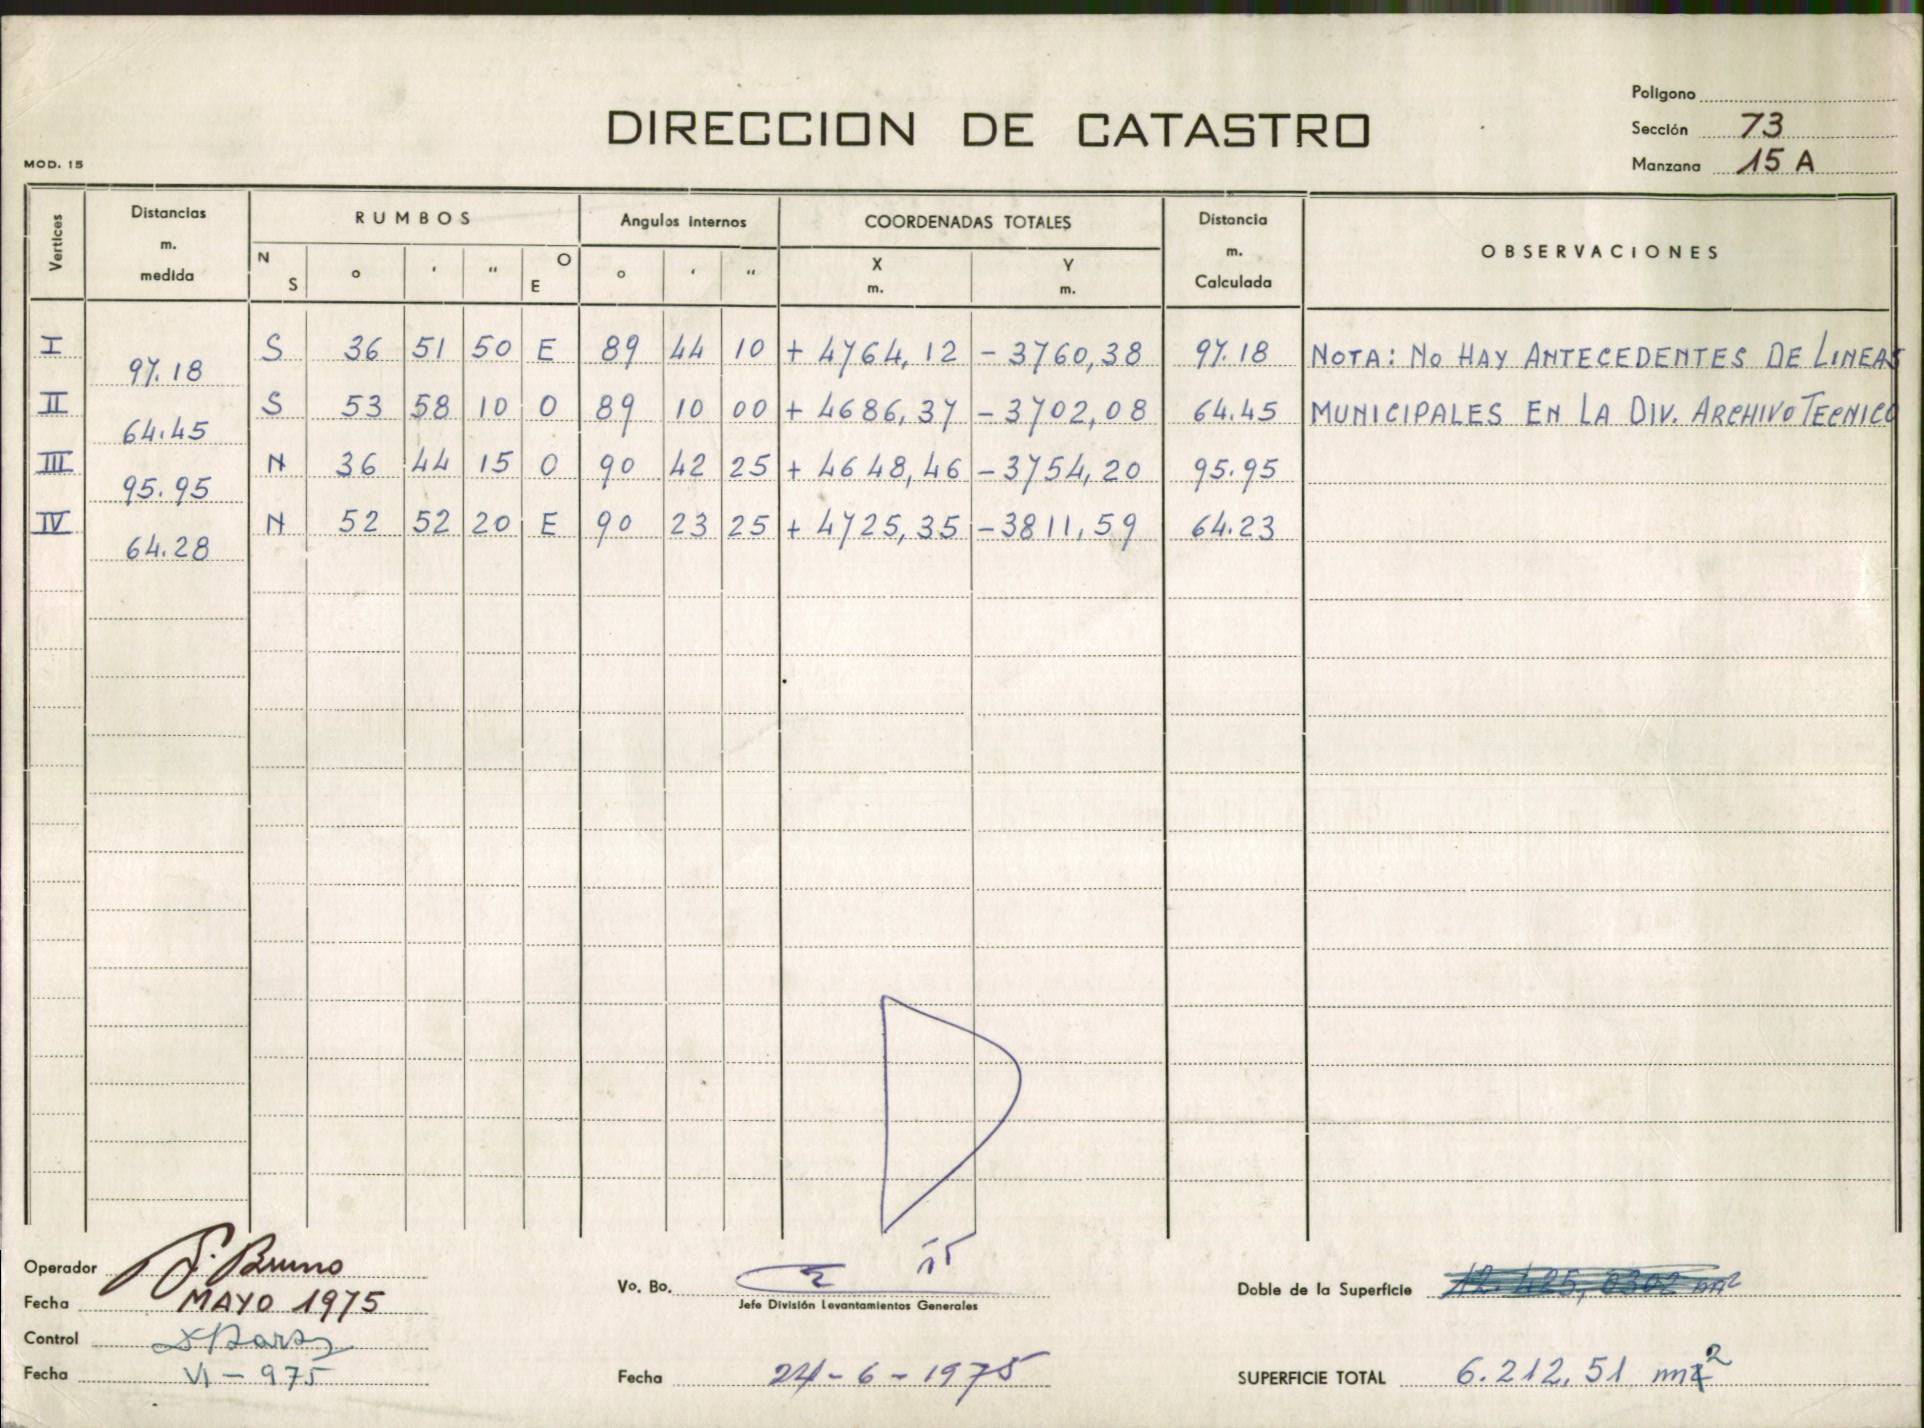 DIRECCION DE CATASTRO
Polígono
Sección 73
Manzana 15 A
MOD. 15
Vertices Distancias m. medida RUMBOS Angulos internos COORDENADAS TOTALES Distancia m. Calculada OBSERVACIONES
N S ° ' " O E ° ' " X m. Y m.
I S 36 51 50 E 89 44 10 + 4764,12 - 3760,38 97.18 NOTA: NO HAY ANTECEDENTES DE LINEAS
97.18
II S 53 58 10 O 89 10 00 + 4686,37 - 3702,08 64.45 MUNICIPALES EN LA DIV. ARCHIVO TECNICO
64.45
III N 36 44 15 O 90 42 25 + 4648,46 - 3754,20 95.95
95.95
IV N 52 52 20 E 90 23 25 + 4725,35 - 3811,59 64.23
64.28
Operador Bruno
Fecha MAYO 1975
Control
Fecha VI - 975
Vo. Bo.
Jefe División Levantamientos Generales
Fecha 24 - 6 - 1975
Doble de la Superficie m2
SUPERFICIE TOTAL 6.212,51 m2